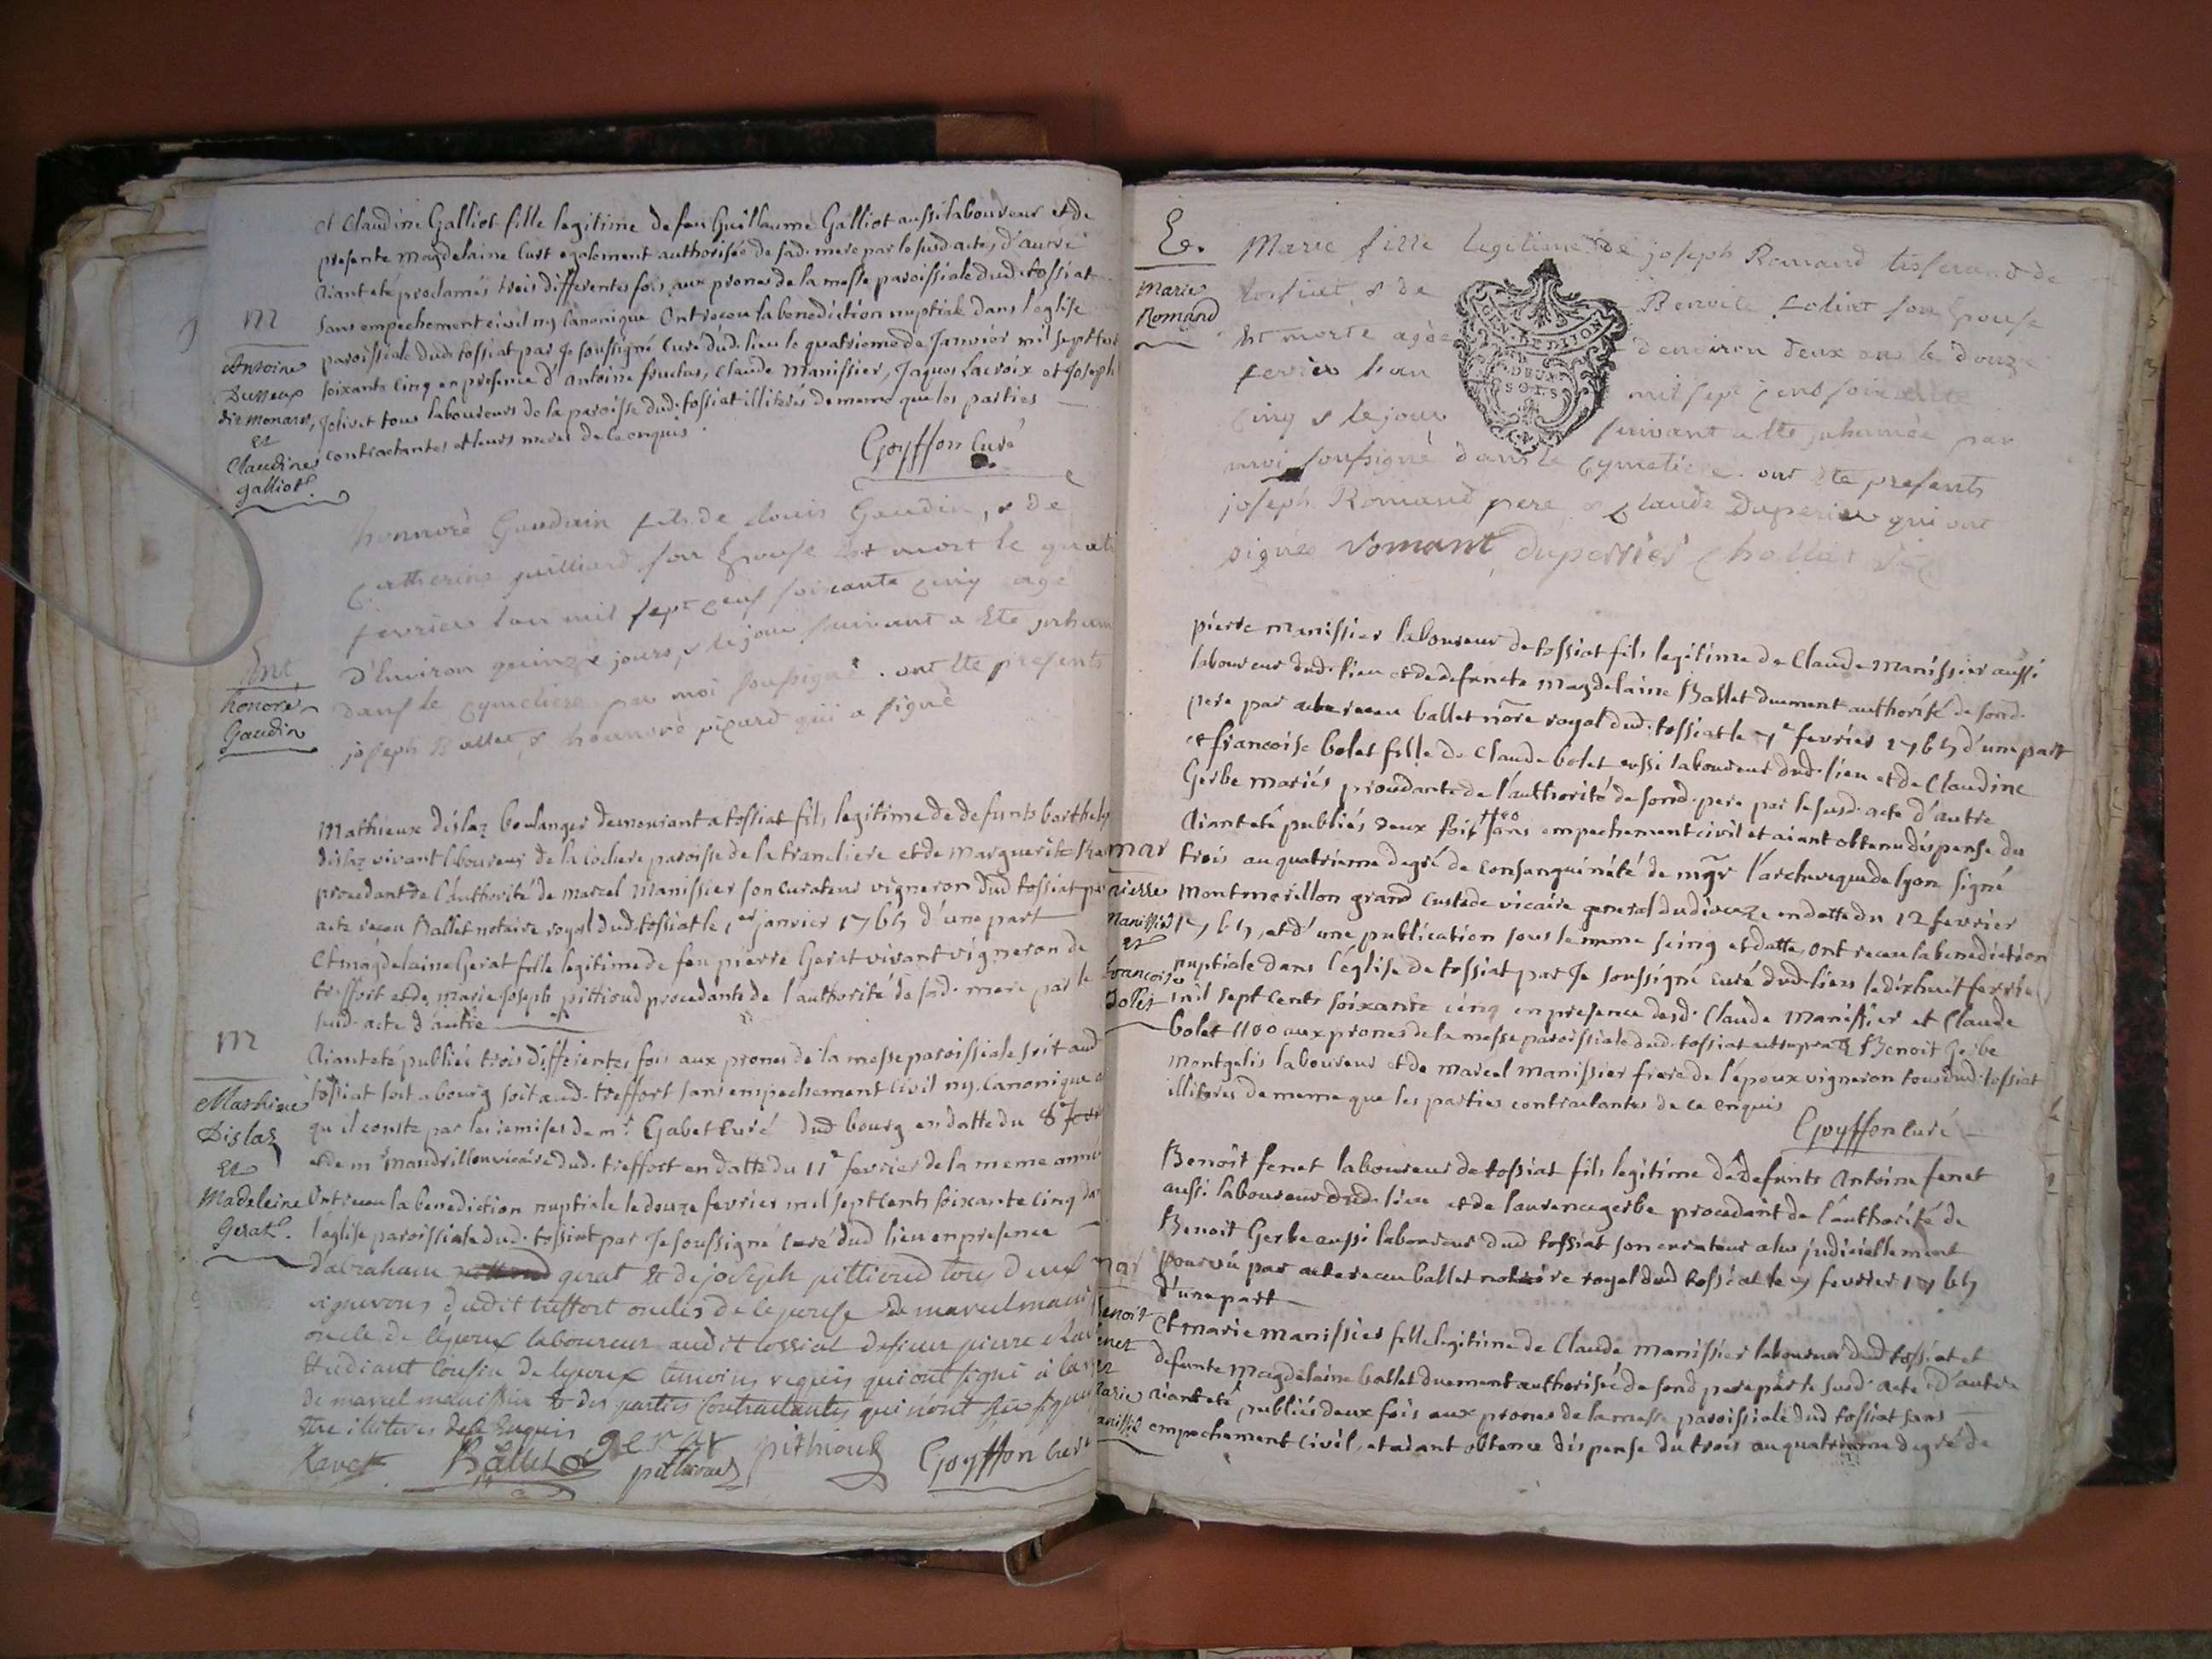 et Claudine Galliot fille legitime de feu Guillaume Galliot aussi laboureur et de
presente Magdelaine Curt egalement authorisée de sad. mere par le susd. acte, d'autre
Aiant eté proclamés trois differentes fois aux prones de la messe paroissiale dud. tossiat
sans empechement civil ny canonique Ont receu la benediction nuptiale dans l'eglise
paroissiale dud. tossiat par Je soussigné Curé dud. lieu le quatrieme de Janvier mil sept
soixante cinq en presence d'Antoine, Claude Manissier, Jaques Lacroix et Joseph
Jolivet tous laboureurs de la paroisse dud. tossiat illiterés de meme que les parties
contractantes et leurs meres de ce enquis.
Goyffon Curé
M
Antoine
dit monard,
Et
Claudine
galliot
honnoré Gaudin fils de Louis Gaudin, & de
Catherine juilliard son Epouse Est mort le
fevrier l'an mil sept cens soixante cinq agé
d'Environ quinze jours, & le jour suivant a Eté
dans le cymetiere par moi soussigné. ont Eté presents
joseph Ballet & honnoré picard qui a signé
Ent.
honoré
Gaudin
Mathieux dislaz boulanger demeurant a tossiat fils legitime de defunts
dislaz vivant laboureur de la paroisse de la trancliere et de Marguerite
procedant de l'authorité de Marcel Manissier son curateur vigneron dud tossiat
acte receu Ballet notaire royal dud. tossiat le 1er janvier 1765 d'une part
Et magdelaine Gerat fille legitime de feu pierre Gerat vivant vigneron de
treffort et de marie joseph pittioud procedante de l'authorité de sad. mere par le
susd. acte d'autre
Aiant eté publiés trois differentes fois aux prones de la messe paroissiale soit aud
tossiat soit a bourg soit aud. treffort sans empechement civil ny Canonique
qu'il conste par les remises de mr. Gabet Curé dud bourg en datte du 8
et de mr Mandrillon vicaire dud. treffort en datte du 11e fevrier de la meme
Ont receu la benediction nuptiale le douze fevrier mil sept cents soixante cinq
l'eglise paroissiale dud. tossiat par Je soussigné Curé dud lieu en presence
d'abraham gerat & de joseph pittioud tous deux
vignerons dudit treffort oncles de lepouse de marcel
oncle de lepoux laboureur audit tossiat de sieur pierre
Etudiant cousin de lepoux temoins requis qui ont signé a la
de marcel manissier & des parties Contractantes qui n'ont
illiteres de ce Enquis
Ravet Ballet gerat pithioud pithioud Goyffon Curé
M
Mathieu
Dislaz
Et
Madeleine
Gerat.
E.
Marie
Romand
Marie fille legitime de joseph Romand tisserand de
tossiat, & de Benoite son Epouse
Est morte agée d'environ deux ans le douze
fevrier l'an mil sept cens soixante
cinq & le jour suivant a Eté inhumée par
moi soussigné dans le cymetiere. ont Eté presents
joseph Romand pere & Claude Duperrier qui ont
signés Romant duperrier
GEN DEUX SOLS
pierre manissier laboureur de tossiat fils legitime de Claude Manissier aussi
laboureur dud. lieu et de defuncte Magdelaine Ballet duement authorisé de sond.
pere par acte receu ballet nore royal dud. tossiat le 7e fevrier 1765 d'une part
et francoise bolet fille de Claude bolet aussi laboureur dud. lieu et de Claudine
Gerbe mariés procedante de l'authorité de sond. pere par le susd. acte d'autre
Aiant eté publiés deux fois sans empechement civil et aiant obtenu dispense du
trois au quatrieme degré de consanguinité de mgr l'archeveque de lyon signé
Montmorillon grand Custode vicaire general du dioceze en datte du 12 fevrier
1765, et d'une publication sous le meme seing et datte, ont receu la benediction
nuptiale dans l'église de tossiat par Je soussigné curé dud. lieu le dixhuit fevrier
mil sept cents soixante cinq en presence desd. Claude Manissier et Claude
bolet aux prones de la messe paroissiale dud. tossiat Benoit Gerbe
Montgelis laboureur et de Marcel Manissier frere de l'epoux vigneron tous dud. tossiat
illiteres de meme que les parties contractantes de ce enquis
Goyffon Curé
mar
pierre
manissier
Et
francoise
Bollet
Benoit fenet laboureur de tossiat fils legitime de defunts Antoine fenet
aussi laboureur dud. lieu et de laurence gerbe procedant de l'authorité de
Benoit Gerbe aussi laboureur dud tossiat son curateur a luy judiciellement
pourvu par acte receu ballet notaire royal dud tossiat le 7 fevrier 1765
d'une part
Et marie manissier fille legitime de Claude Manissier laboureur dud tossiat et
defunte Magdelaine ballet duement authorisée de sond pere par le susd. acte d'autre
Aiant eté publiés deux fois aux prones de la messe paroissiale dud tossiat sans
empechement civil, et aiant obtenu dispense du trois au quatrieme degré de
mar
Benoit
fenet
Et
Marie